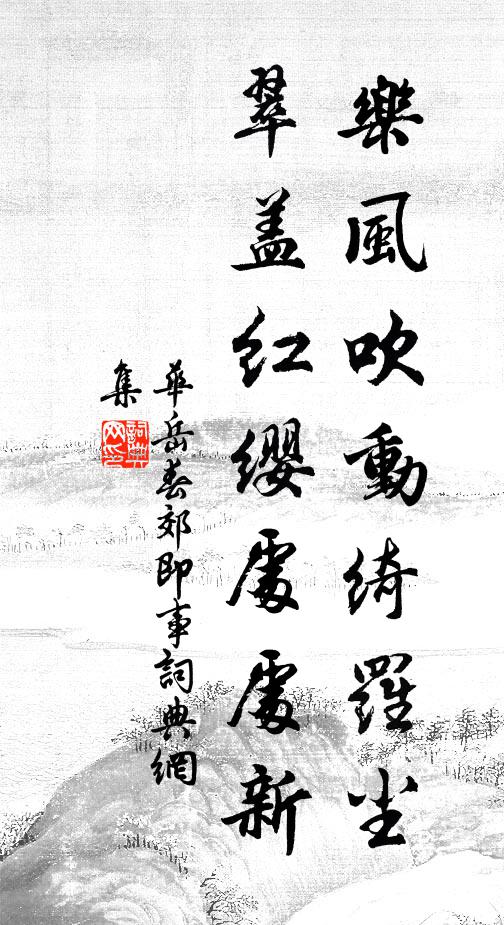 樂風吹動綺羅尘
翠盖紅纓處處新
華岳春郊即事詞典網
集